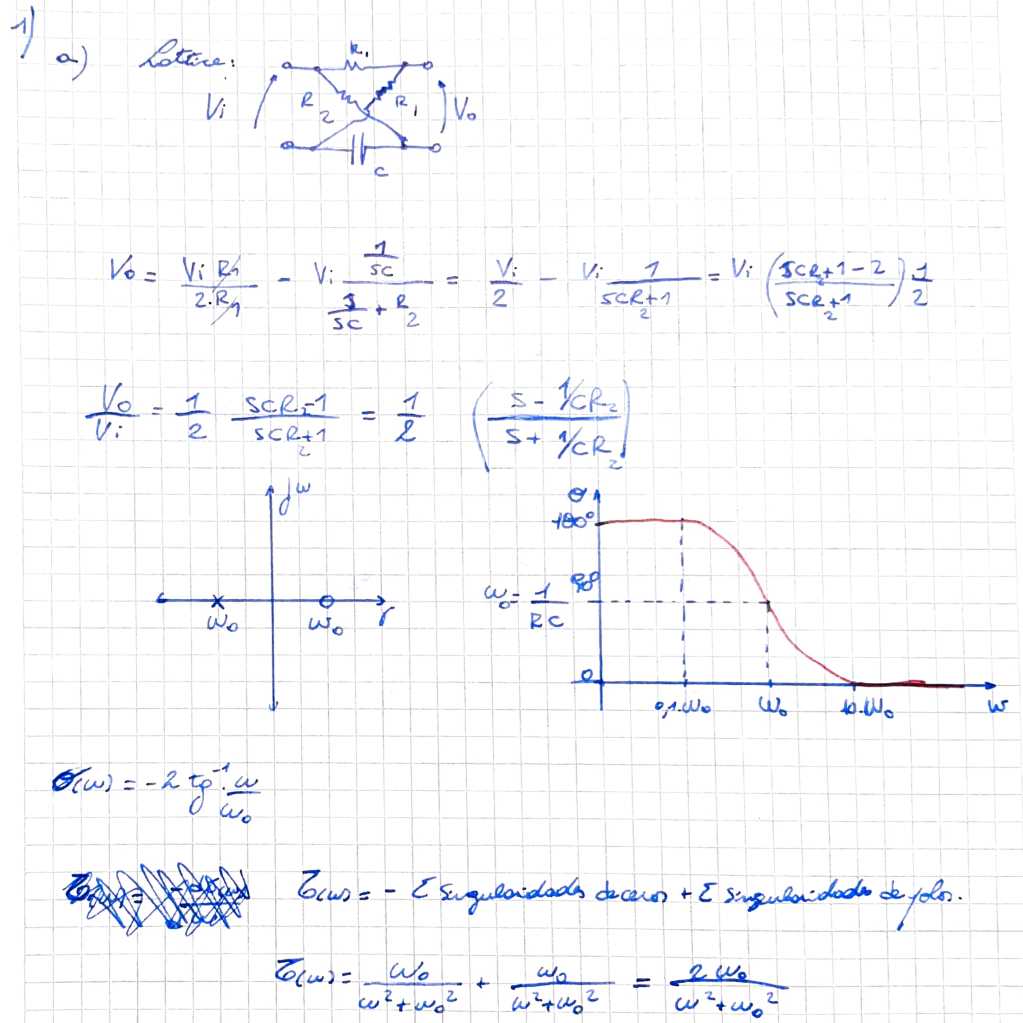 1)
a) Lattice:
R₁
Vi R₂ R₁ Vo
C
Vo = Vi R1 / 2.R1 - Vi (1/SC) / (1/SC + R₂) = Vi/2 - Vi 1/(SCR₂+1) = Vi ((SCR₂+1-2)/(SCR₂+1)) 1/2
Vo/Vi = 1/2 (SCR₂-1)/(SCR₂+1) = 1/2 ((S - 1/CR₂)/(S + 1/CR₂))
jω
ω₀ ω₀ σ
180°
ω₀ = 1/RC 90°
0
0,1.ω₀ ω₀ 10.ω₀ ω
θ(ω) = -2 tg⁻¹ ω/ω₀
τ(ω) = - Σ singularidades de ceros + Σ singularidades de polos.
τ(ω) = ω₀/(ω²+ω₀²) + ω₀/(ω²+ω₀²) = 2ω₀/(ω²+ω₀²)